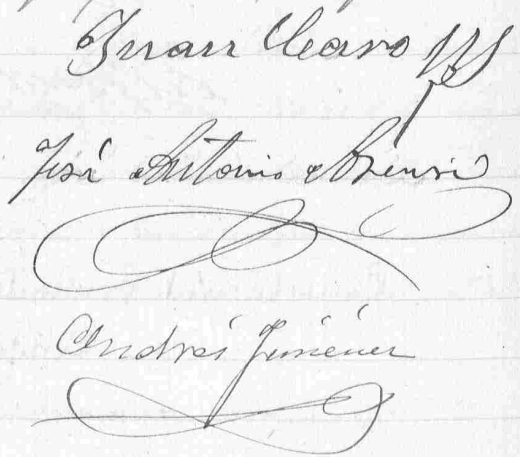 Juan Claro
José Antonio Asensi
Andrés Jiménez